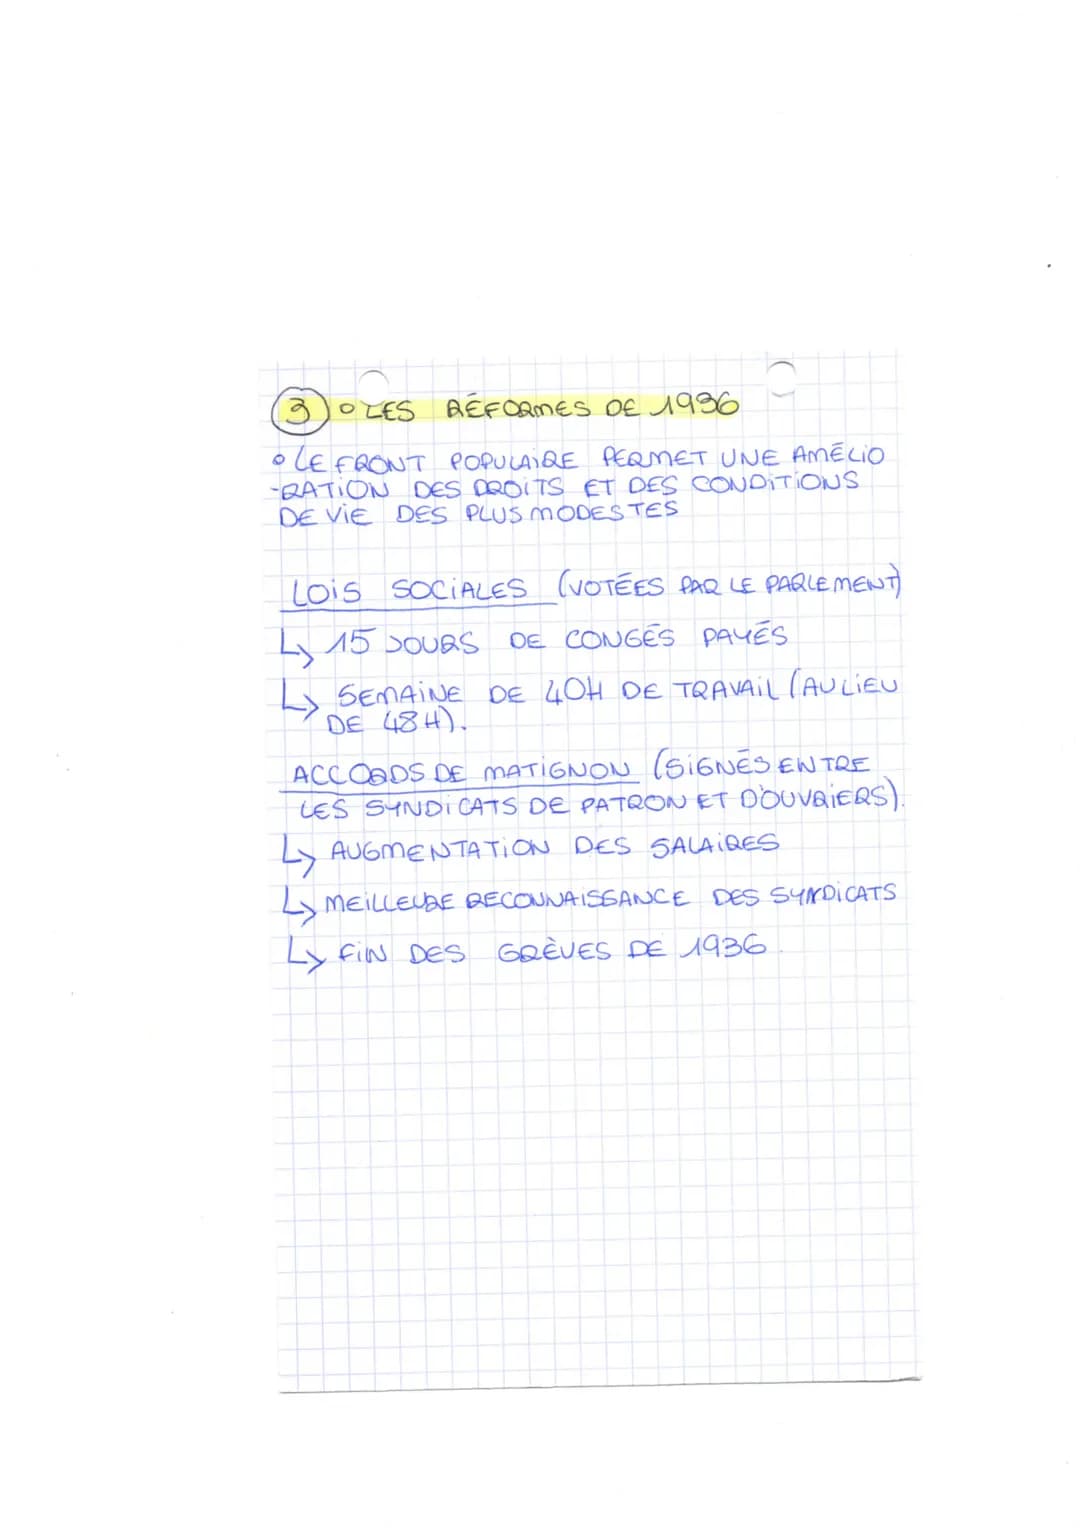 3 ° LES RÉFORMES DE 1936
° LE FRONT POPULAIRE PERMET UNE AMÉLIO
-RATION DES DROITS ET DES CONDITIONS
DE VIE DES PLUS MODESTES
LOIS SOCIALES (VOTÉES PAR LE PARLEMENT)
↳ 15 JOURS DE CONGÉS PAYÉS
↳ SEMAINE DE 40H DE TRAVAIL (AU LIEU
DE 48H).
ACCORDS DE MATIGNON (SIGNÉS ENTRE
LES SYNDICATS DE PATRON ET D'OUVRIERS).
↳ AUGMENTATION DES SALAIRES
↳ MEILLEURE RECONNAISSANCE DES SYNDICATS
↳ FIN DES GRÈVES DE 1936.